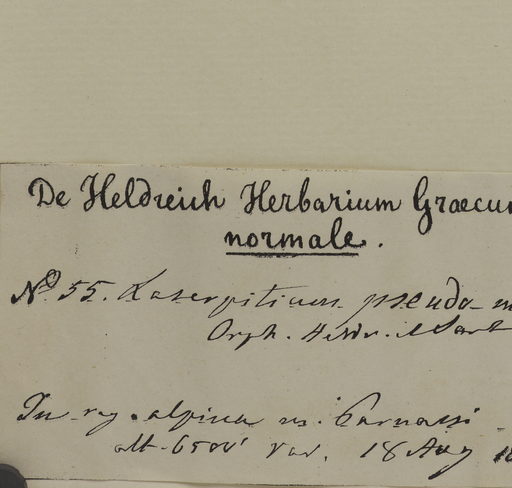 De Heldreich Herbarium Graecu
normale.
No 55. Laserpitium pseudo-m
Orph. Heldr. & Sart
In reg. alpina m. Parnassi
alt. 6500' 18 Aug 18